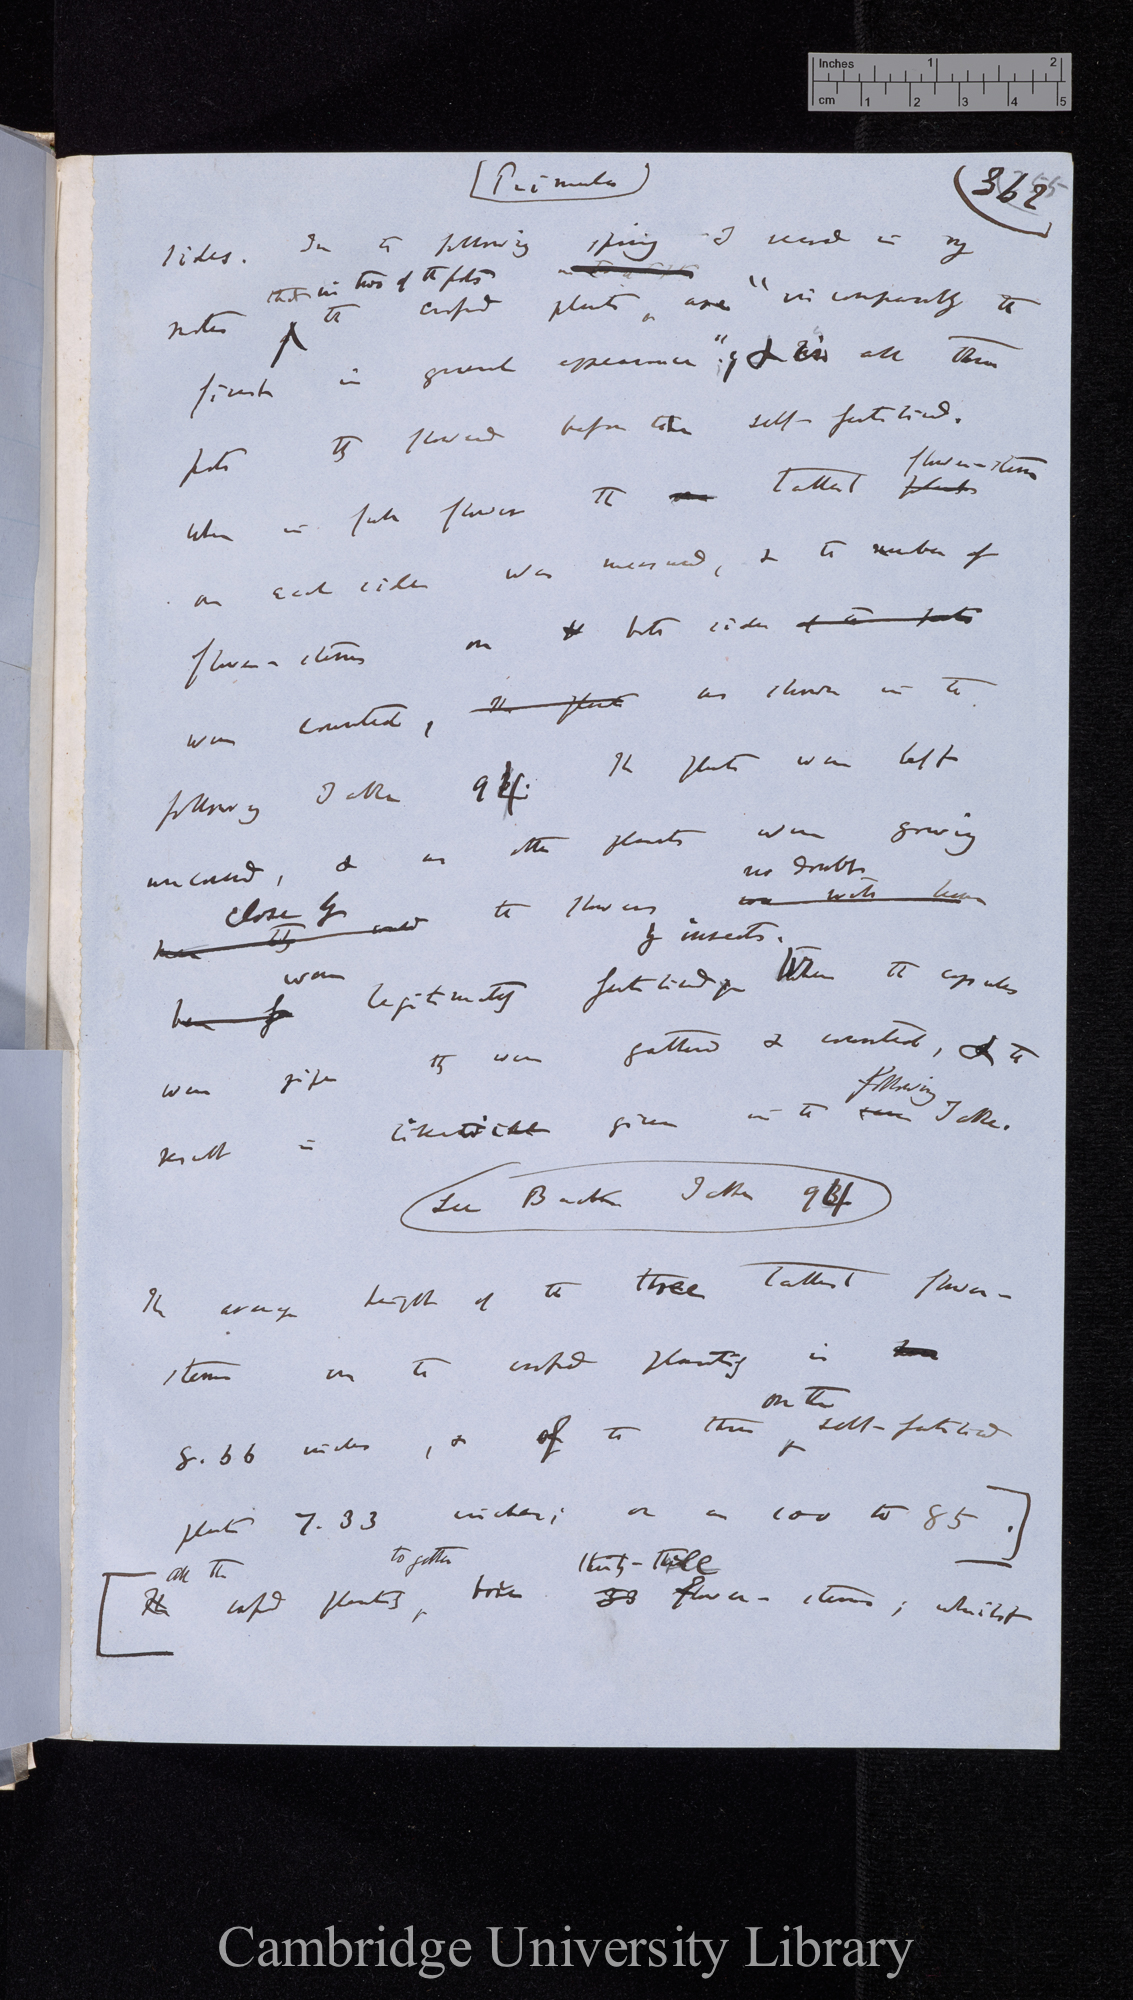 Inches 1 2
cm 1 2 3 4 5
(Primula)
362
sides. In the following spring I record in my
that in two of the pots
notes the crossed plants are "incomparably the
finest in general appearance" & in all three
pots they flowered before the self-fertilised.
flower-stems
When in full flower the tallest plants
on each side was measured, & the number of
flower-stems on both sides of the pots
was counted, the plants as shown in the
following Table 94. The plants were left
uncovered, & as other plants were growing
no doubt
close by the flowers
by insects.
were
been legitimately fertilised When the capsules
were ripe they were gathered & counted, & the
following
result is likewise given in the same Table.
See Back Table 94
The average height of the three tallest flower-
stems on the crossed plants is
on the
8.66 inches, & of the three self-fertilised
plants 7.33 inches; or as 100 to 85.
all the together thirty-three
The crossed plants, bore 33 flower-stems; whilst
Cambridge University Library